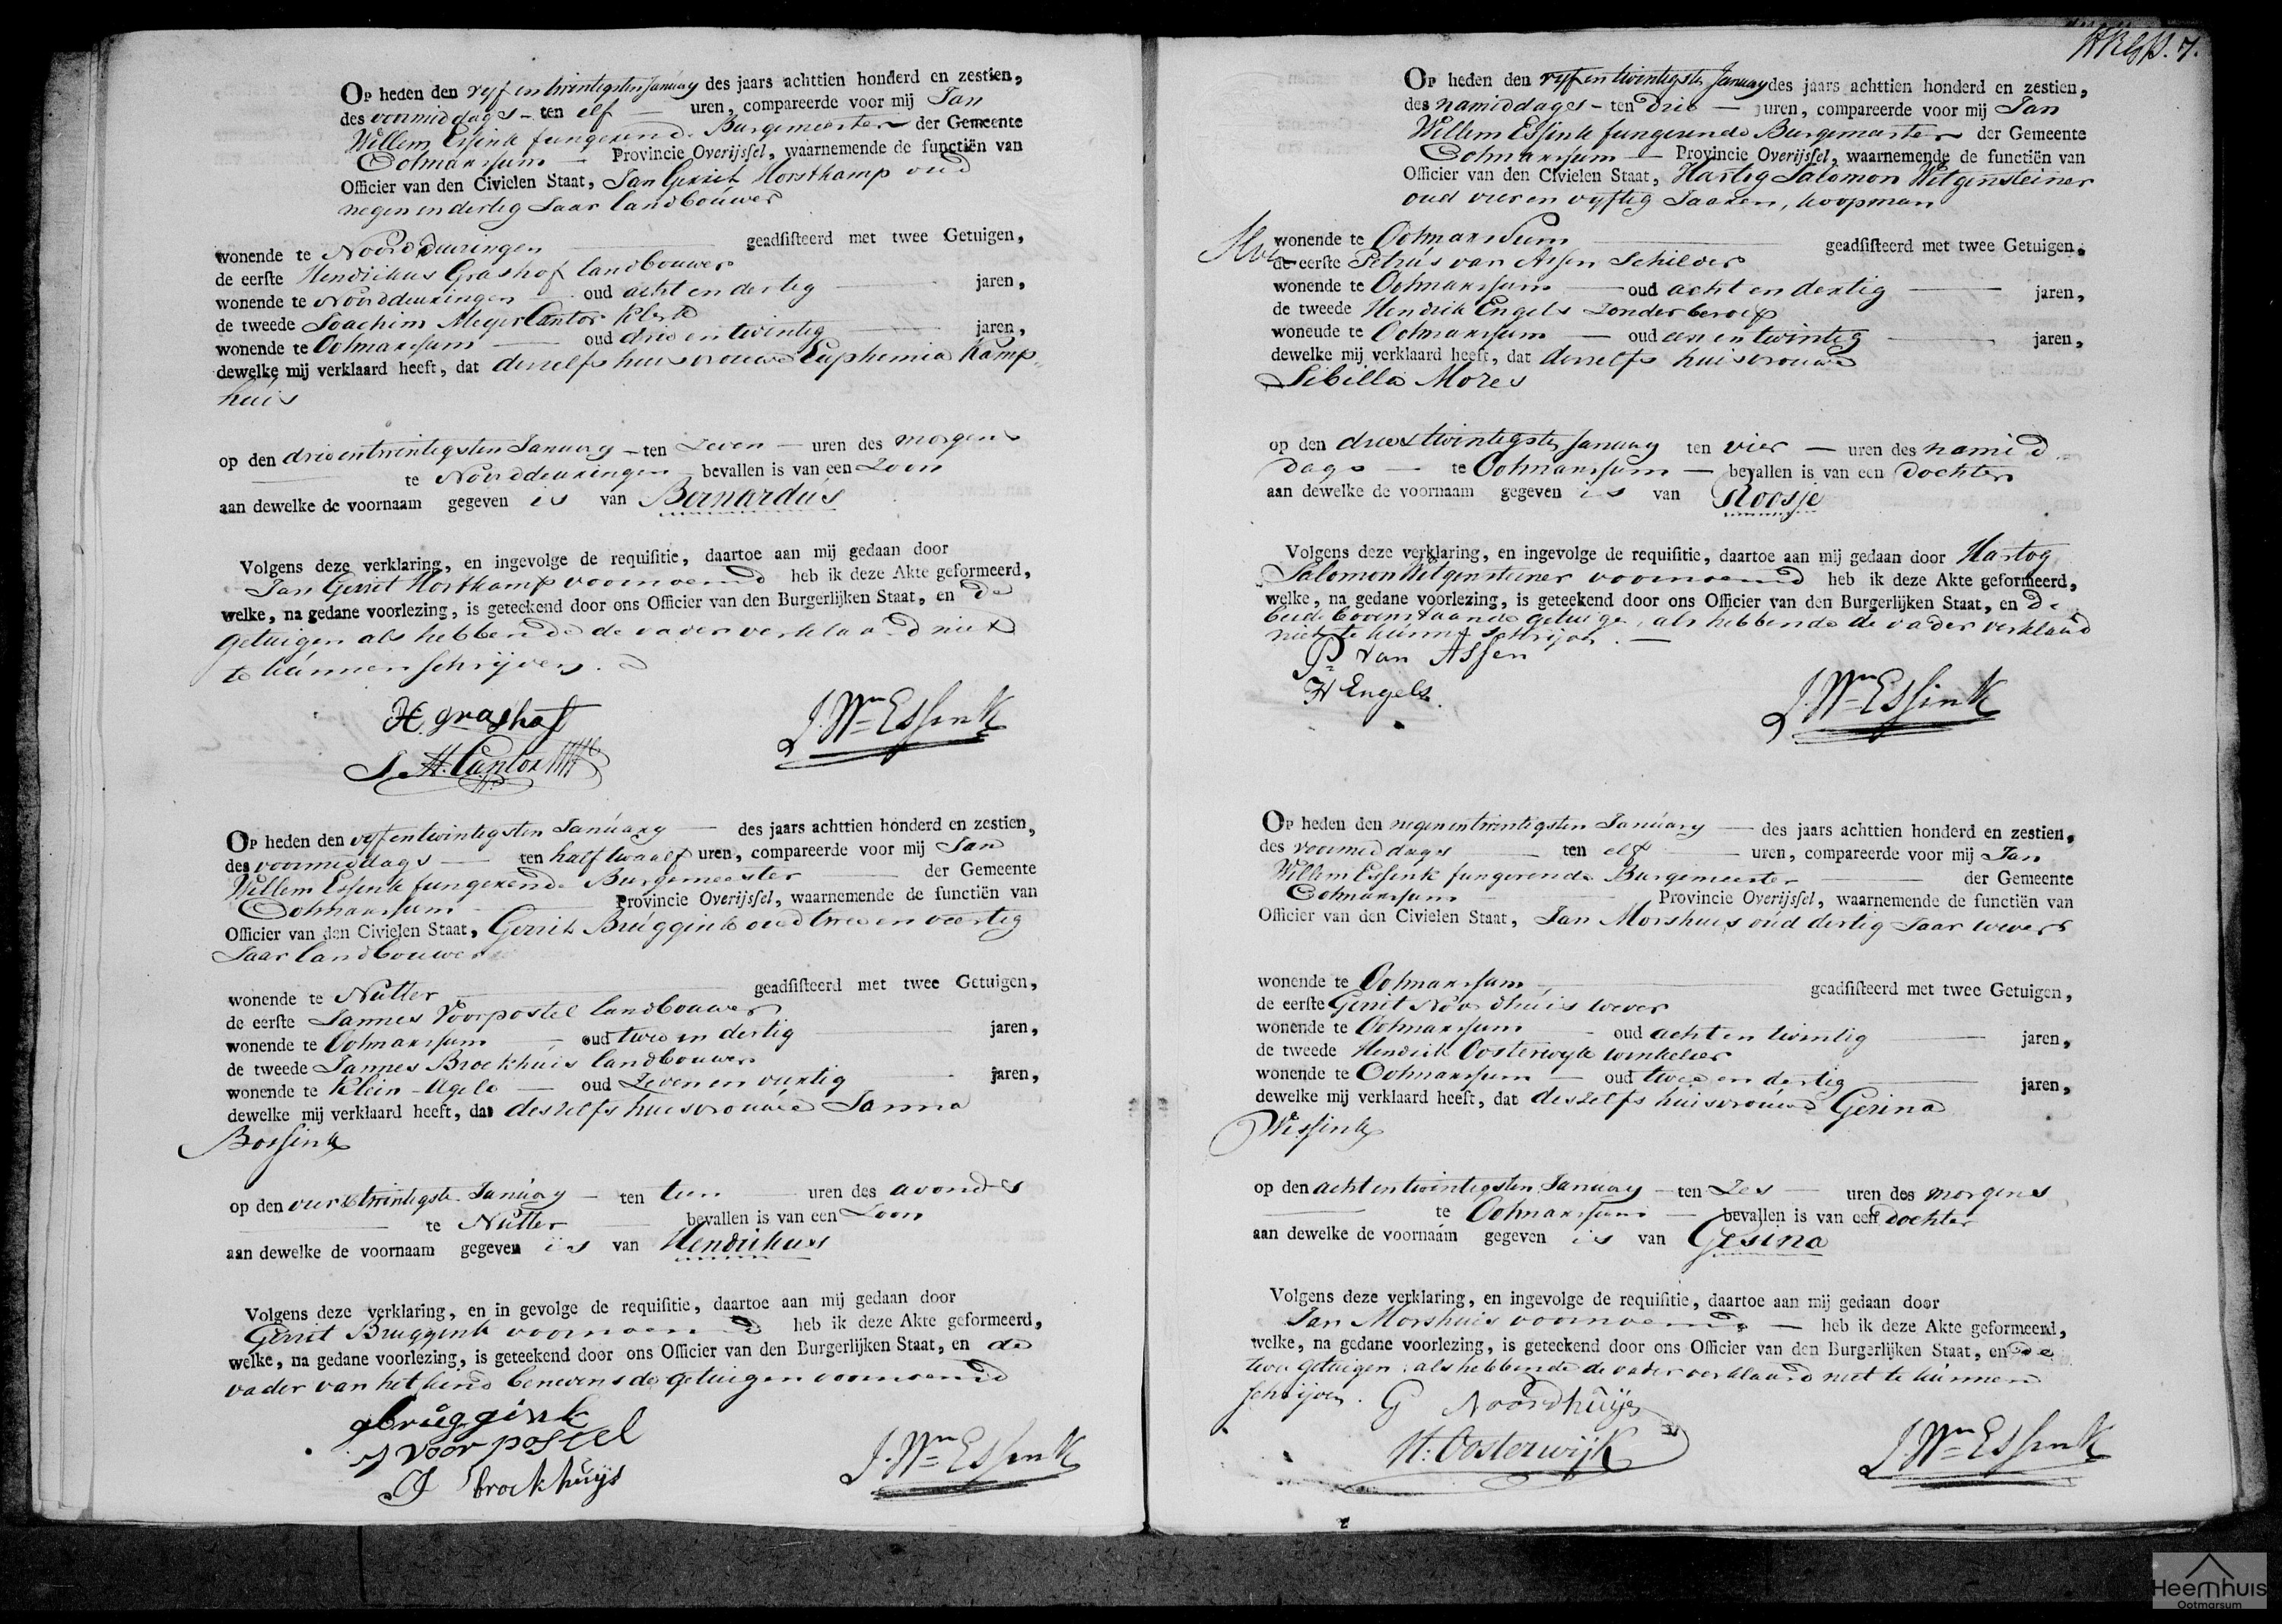 Op heden den vyf en twintigsten January des jaars achttien honderd en zestien,
des voormiddags ten elf uren, compareerde voor mij Jan
Willem Essink fungerende Burgemeester der Gemeente
Ootmarssum Provincie Overijssel, waarnemende de functiën van
Officier van den Civielen Staat, Jan Gerrit Horstkamp oud
negen en dertig Jaar landbouwer
wonende te Noorddeuringen geadsisteerd met twee Getuigen,
de eerste Hendrikus Grashof landbouwer
wonende te Noorddeuringen oud acht en dertig jaren,
de tweede Joachim Meyer Cantor klerk
wonende te Ootmarssum oud drie en twintig jaren,
dewelke mij verklaard heeft, dat deszelfs huisvrouwe Euphemia Kamp
huis
op den drie en twintigsten January ten Zeven uren des morgens
te Noorddeuringen bevallen is van een Zoon
aan dewelke de voornaam gegeven is van Bernardus
Volgens deze verklaring, en ingevolge de requisitie, daartoe aan mij gedaan door
Jan Gerrit Horstkamp voornoemd heb ik deze Akte geformeerd,
welke, na gedane voorlezing, is geteekend door ons Officier van den Burgerlijken Staat, en de
getuigen als hebbende de vader verklaard niet
te kunnen schrijven.
H. grashof
J. Wm Essink
J. H. Cantor
Op heden den vyf en twintigsten January des jaars achttien honderd en zestien,
des voormiddags ten half twaalf uren, compareerde voor mij Jan
Willem Essink fungerende Burgemeester der Gemeente
Ootmarssum Provincie Overijssel, waarnemende de functiën van
Officier van den Civielen Staat, Gerrit Bruggink oud twee en veertig
Jaar landbouwer
wonende te Nutter geadsisteerd met twee Getuigen,
de eerste Jannes Voorpostel landbouwer
wonende te Ootmarssum oud twee en dertig jaren,
de tweede Jannes Broekhuis landbouwer
wonende te Klein-Agelo oud Zeven en veertig jaren,
dewelke mij verklaard heeft, dat deszelfs huisvrouwe Janna
Bossink
op den vier & twintigste January ten tien uren des avonds
te Nutter bevallen is van een Zoon
aan dewelke de voornaam gegeven is van Hendrikus
Volgens deze verklaring, en in gevolge de requisitie, daartoe aan mij gedaan door
Gerrit Bruggink voornoemd heb ik deze Akte geformeerd,
welke, na gedane voorlezing, is geteekend door ons Officier van den Burgerlijken Staat, en de
vader van het kind benevens de getuigen voornoemd
gbruggink
J voorpostel
J broekhuijs
J. Wm Essink
7.
Op heden den vyf en twintigste January des jaars achttien honderd en zestien,
des namiddages ten drie uren, compareerde voor mij Jan
Willem Essink fungerende Burgemeester der Gemeente
Ootmarssum Provincie Overijssel, waarnemende de functiën van
Officier van den Civielen Staat, Hartog Salomon Witgensteiner
oud vier en vyftig Jaaren, koopman
wonende te Ootmarssum geadsisteerd met twee Getuigen,
de eerste Petrus van Assen Schilder
wonende te Ootmarssum oud acht en dertig jaren,
de tweede Hendrik Engels zonder beroep
wonende te Ootmarssum oud een en twintig jaren,
dewelke mij verklaard heeft, dat deszelfs huisvrouwe
Sibilla Mozes
op den drie & twintigste January ten vier uren des namid
dags te Ootmarssum bevallen is van een dochter
aan dewelke de voornaam gegeven is van Roosje
Volgens deze verklaring, en ingevolge de requisitie, daartoe aan mij gedaan door Hartog
Salomon Witgensteiner voornoemd heb ik deze Akte geformeerd,
welke, na gedane voorlezing, is geteekend door ons Officier van den Burgerlijken Staat, en de
beide bovenstaande getuigen, als hebbende de vader verklaard
niet te kunnen schrijven.
P. van Assen
H Engels.
J. Wm Essink
Op heden den negen en twintigsten January des jaars achttien honderd en zestien,
des voormiddags ten elf uren, compareerde voor mij Jan
Willem Essink fungerende Burgemeester der Gemeente
Ootmarssum Provincie Overijssel, waarnemende de functiën van
Officier van den Civielen Staat, Jan Morshuis oud dertig Jaar wever
wonende te Ootmarssum geadsisteerd met twee Getuigen,
de eerste Gerrit Noordhuis wever
wonende te Ootmarssum oud acht en twintig jaren,
de tweede Hendrik Oosterwyk winkelier
wonende te Ootmarssum oud twee en dertig jaren,
dewelke mij verklaard heeft, dat deszelfs huisvrouwe Gerina
Wissink
op den acht en twintigsten January ten Zes uren des morgens
te Ootmarssum bevallen is van een dochter
aan dewelke de voornaam gegeven is van Gesina
Volgens deze verklaring, en ingevolge de requisitie, daartoe aan mij gedaan door
Jan Morshuis voornoemd heb ik deze Akte geformeerd,
welke, na gedane voorlezing, is geteekend door ons Officier van den Burgerlijken Staat, en de
twee getuigen als hebbende de vader verklaard niet te kunnen
schrijven.
G Noordhuijs
H. Oosterwijk
J. Wm Essink
Heemhuis
Ootmarsum